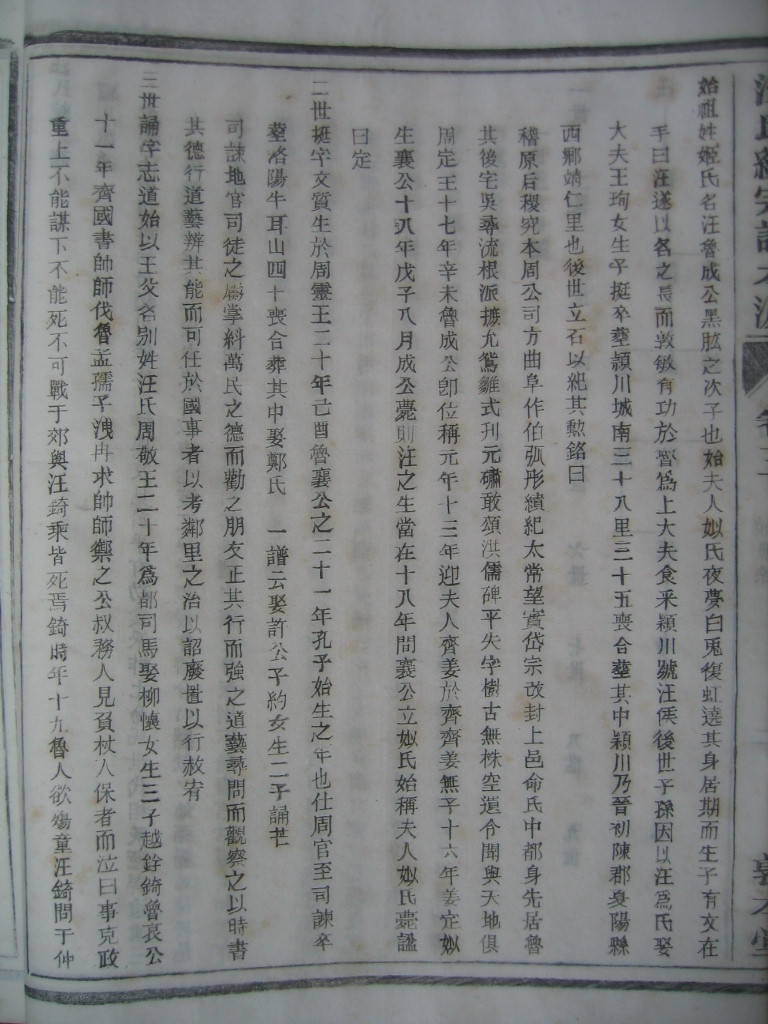 汪氏統宗譜本源
卷三
始祖姓姬氏名汪魯成公黑肱之次子也始夫人姒氏夜夢白兎復虹遶其身居期而生子有文在
手曰汪遂以名之長而敦敏有功於魯爲上大夫食采潁川號汪侯後世子孫因以汪爲氏娶
大夫王珣女生子挺卒葬潁川城南三十八里三十五喪合葬其中潁川乃晉初陳郡夏陽縣
西鄉靖仁里也後世立石以紀其勲銘曰
稽原后稷究本周公司方曲阜作伯弧彤績紀太常望實岱宗攺封上邑命氏中都身先居魯
其後宅吳尋流根派擴允鴛雛式刊元礴敢頌洪儒碑平失字樹古無株空遺令聞與天地俱
周定王十七年辛未魯成公卽位稱元年十三年迎夫人齊姜於齊齊姜無子十六年姜定姒
生襄公十八年戊子八月成公薨則汪之生當在十八年間襄公立姒氏始稱夫人姒氏薨諡
曰定
二世挺字文質生於周靈王二十年亡酉魯襄公之二十一年孔子始生之年也仕周官至司諫卒
葬洛陽牛耳山四十喪合葬其中娶鄭氏 一譜云娶許公子約女生二子誦芒
司諫地官司徒之屬掌糾萬民之德而勸之朋友正其行而強之道藝尋問而觀察之以時書
其德行道藝辨其能而可任於國事者以考鄰里之治以詔廢置以行赦宥
三世誦字志道始以王父名别姓汪氏周敬王二十年爲都司馬娶柳懷女生三子越銓錡魯哀公
十一年齊國書帥師伐魯孟孺子洩冉求帥師禦之公叔務人見負杖入保者而泣曰事克政
重上不能謀下不能死不可戰于郊與汪錡乘皆死焉錡時年十九魯人欲殤童汪錡問于仲